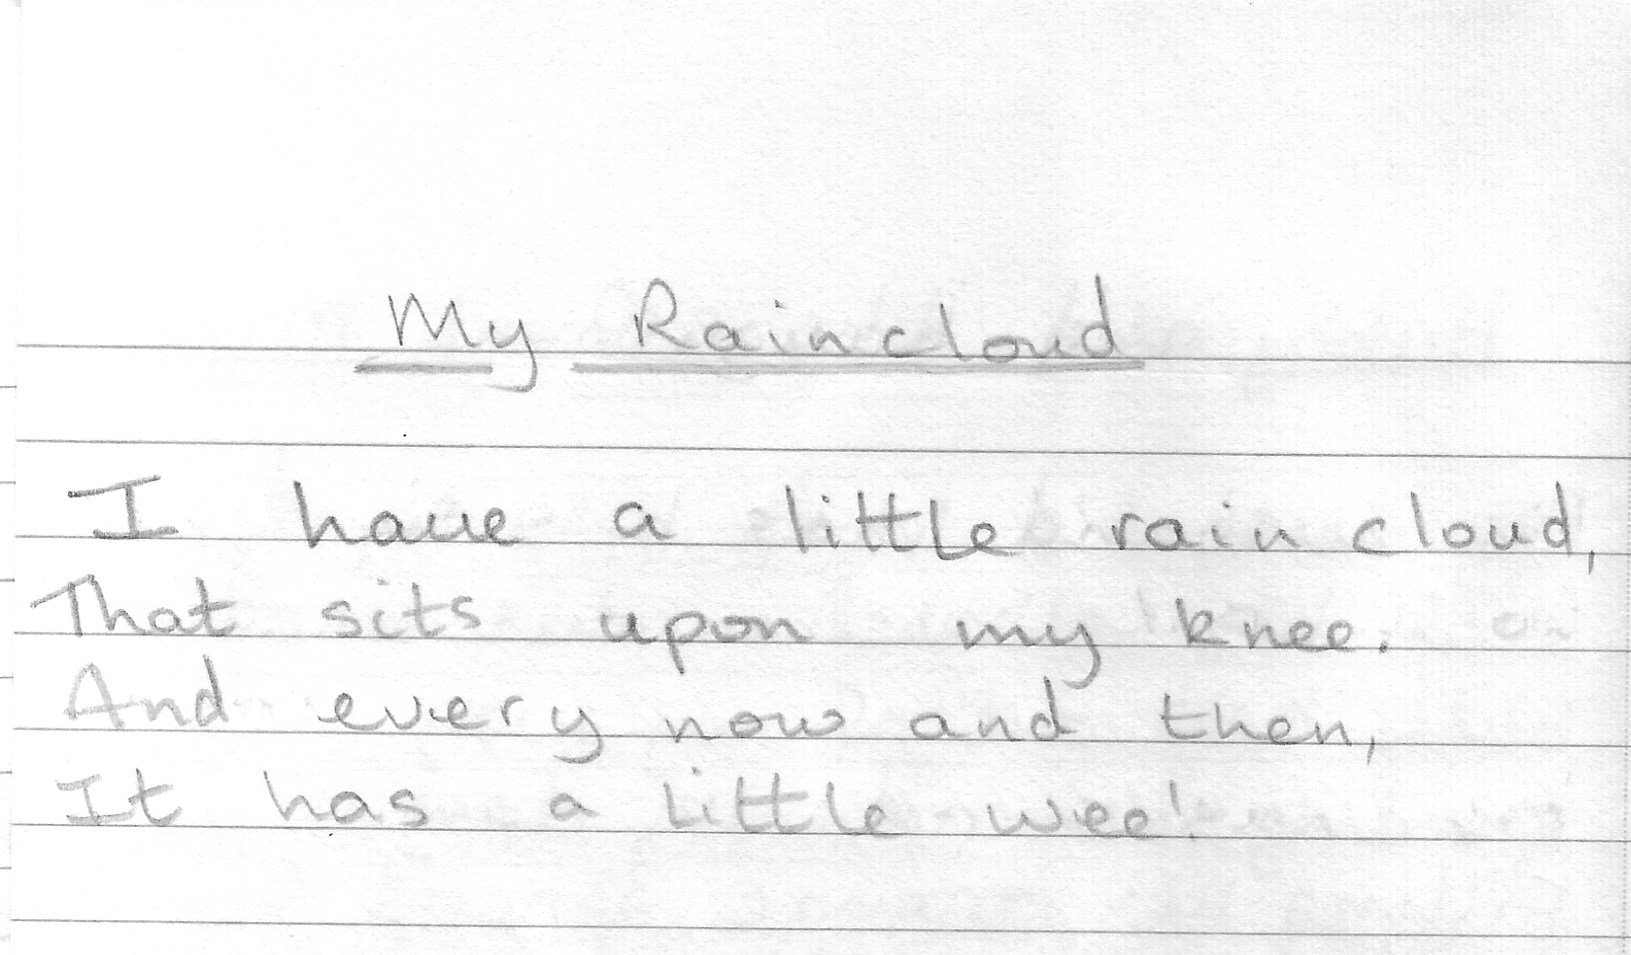 My Raincloud
I have a little rain cloud,
That sits upon my knee.
And every now and then,
It has a little wee!